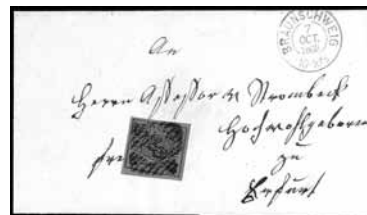 BRAUNSCHWEIG
7
OCT.
An
Herrn Assessor v. Strombeck
Hochwohlgeboren
zu
Erfurt